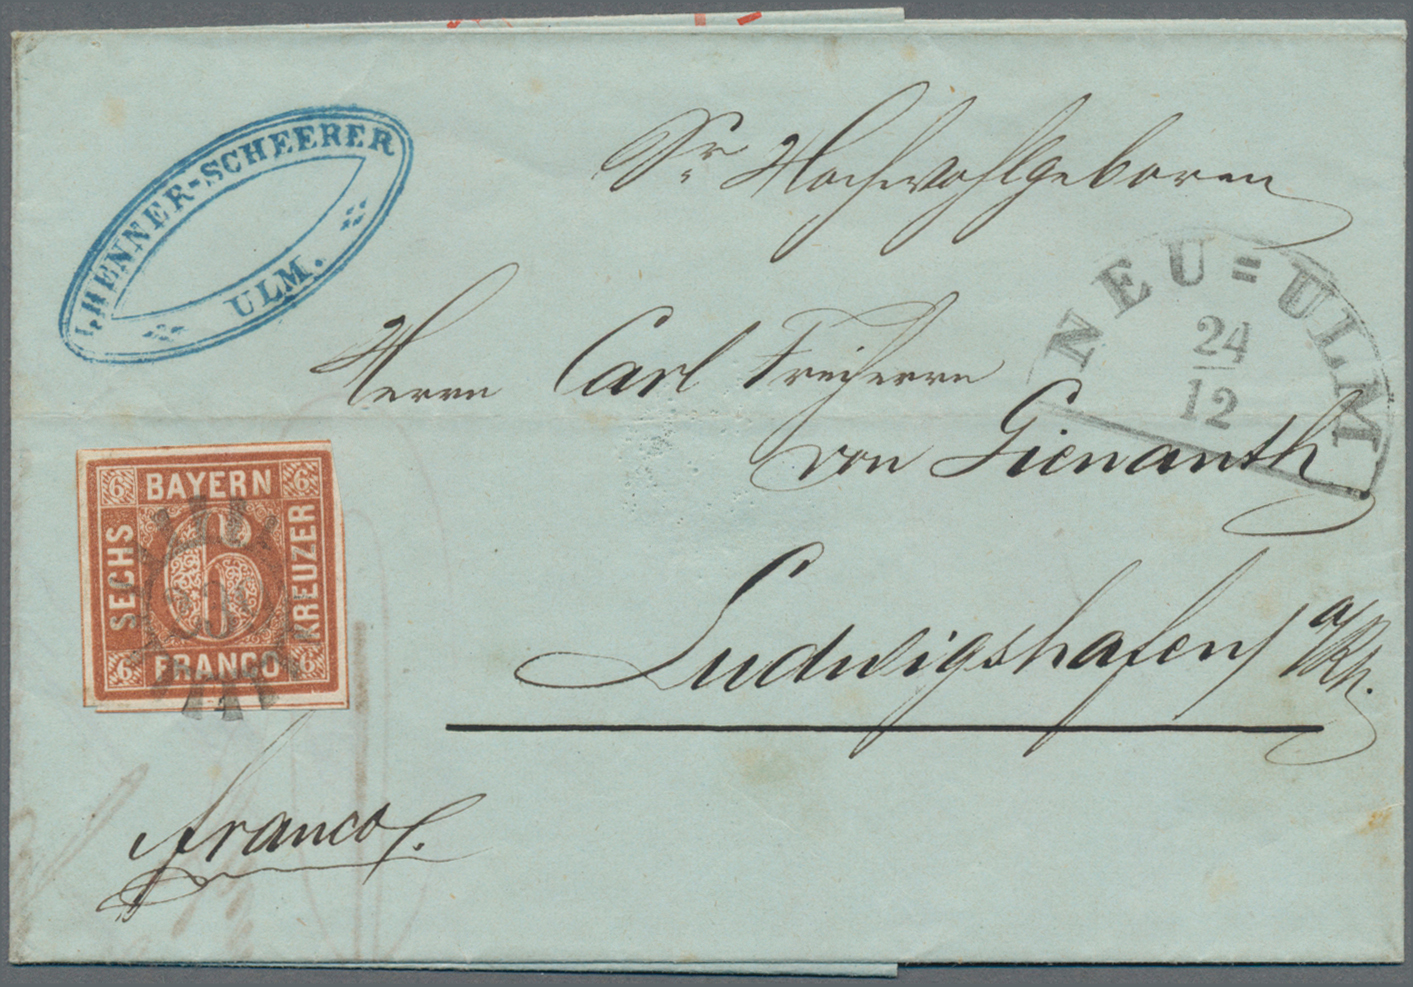 HENNER-SCHEERER
ULM.
Sr Hochwohlgeboren
NEU=ULM
24
12
Herrn Carl Freiherrn
von Gienanth
Ludwigshafen a/Rh.
6 BAYERN 6
SECHS
6
KREUZER
6 FRANCO 6
franco